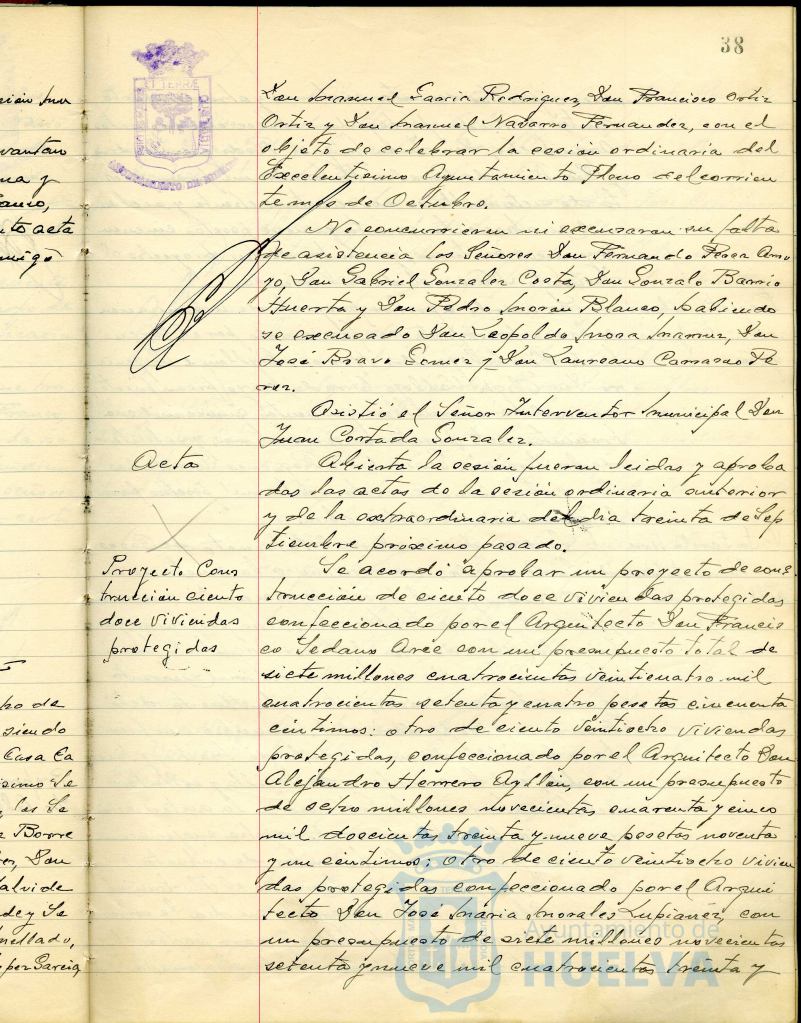 38
Don Manuel Garcia Rodriguez, Don Francisco Ortiz
Ortiz y Don Manuel Navarro Fernandez, con el
objeto de celebrar la sesión ordinaria del
Excelentisimo Ayuntamiento Pleno del corrien
te mes de Octubre.
No concurrieron ni excusaron su falta
de asistencia los Señores Don Fernando Perez Arro
yo, Don Gabriel Gonzalez Costa, Don Gonzalo Barrio
Huerta y Don Pedro Morán Blanco, habiendo
se excusado Don Leopoldo Mora Don
José Bravo Gomez y Don Laureano Carrasco Pe
rez.
Asistió el Señor Interventor Municipal Don
Juan Cortada Gonzalez.
Acta
Abierta la sesión fueron leidas y aproba
das las actas de la sesión ordinaria anterior
y de la extraordinaria del dia treinta de Sep
tiembre próximo pasado.
Proyecto Cons
trucción ciento
doce viviendas
protegidas
Se acordó aprobar un proyecto de cons
trucción de ciento doce viviendas protegidas
confeccionado por el Arquitecto Don Francis
co Sedano Arce con un presupuesto total de
siete millones cuatrocientas veinticuatro mil
cuatrocientas setenta y cuatro pesetas cincuenta
céntimos: otro de ciento veintiocho viviendas
protegidas, confeccionado por el Arquitecto Don
Alejandro Herrero Ayllón, con un presupuesto
de ocho millones novecientas cuarenta y cinco
mil doscientas treinta y nueve pesetas noventa
y un céntimos; otro de ciento veintiocho vivien
das protegidas confeccionado por el Arqui
tecto Don José Maria Morales Lupiañez, con
un presupuesto de siete millones novecientas
setenta y nueve mil cuatrocientas treinta y
Ayuntamiento de
HUELVA
vantan
na y
to acta
po de
siendo
Casa Ca
simo Se
los Se
Borre
Don
de y Se
mellado,